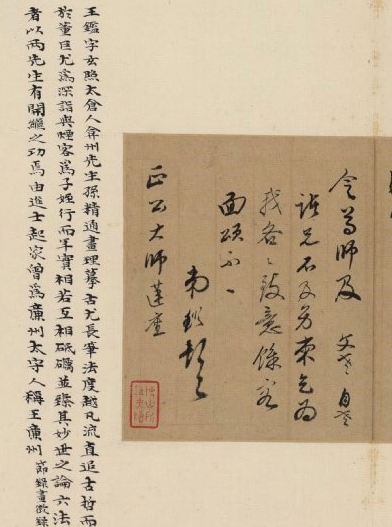 令尊師及
諸兄不及另柬乞為
我各各致意餘容
面頌不一
正公大師蓮座
王鑑字玄照太倉人弇州先生孫精通畫理摹古尤長筆法度越凡流直追古哲而
於董巨尤為深詣與煙客為子姪行而年實相若互相砥礪並臻其妙世之論六法
者以兩先生有開繼之功焉由進士起家曾為廉州太守人稱王廉州 節錄畫徵錄